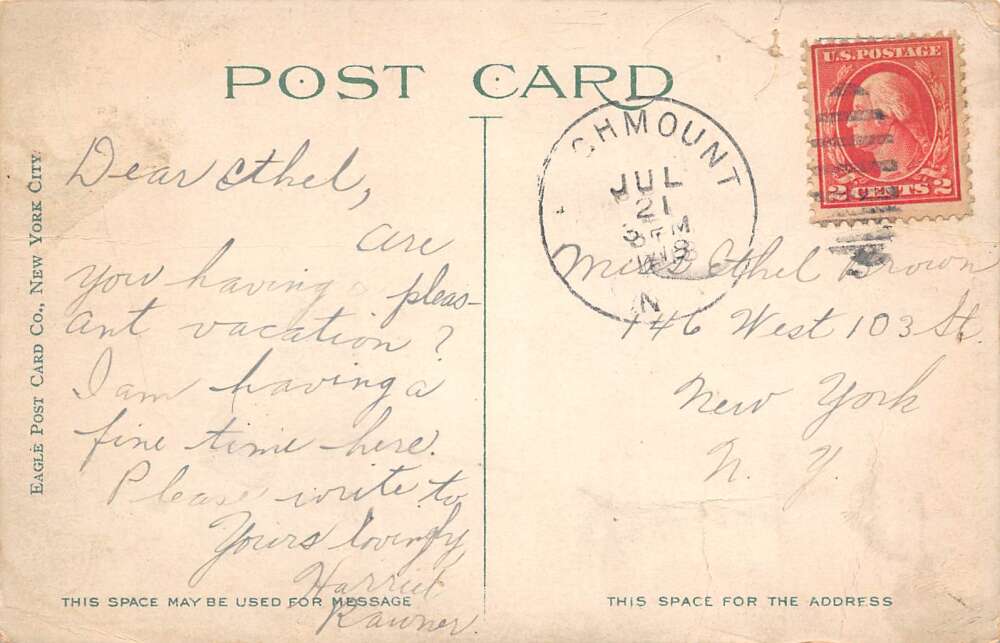 POST CARD
EAGLE POST CARD CO., NEW YORK CITY.
Dear Ethel,
are
you having pleas-
ant vacation?
I am having a
fine time here.
Please write to
Yours lovingly,
Harriet
THIS SPACE MAY BE USED FOR MESSAGE
CHMOUNT
JUL
21
8 PM
1918
N
U.S. POSTAGE
2 CENTS 2
Miss Ethel Brown
146 West 103 St.
New York
N. Y.
THIS SPACE FOR THE ADDRESS